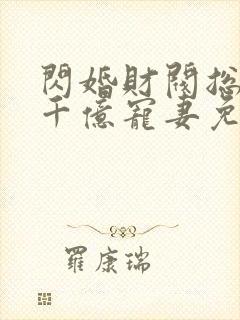 閃婚財閥總
千億寵妻免
羅康瑞